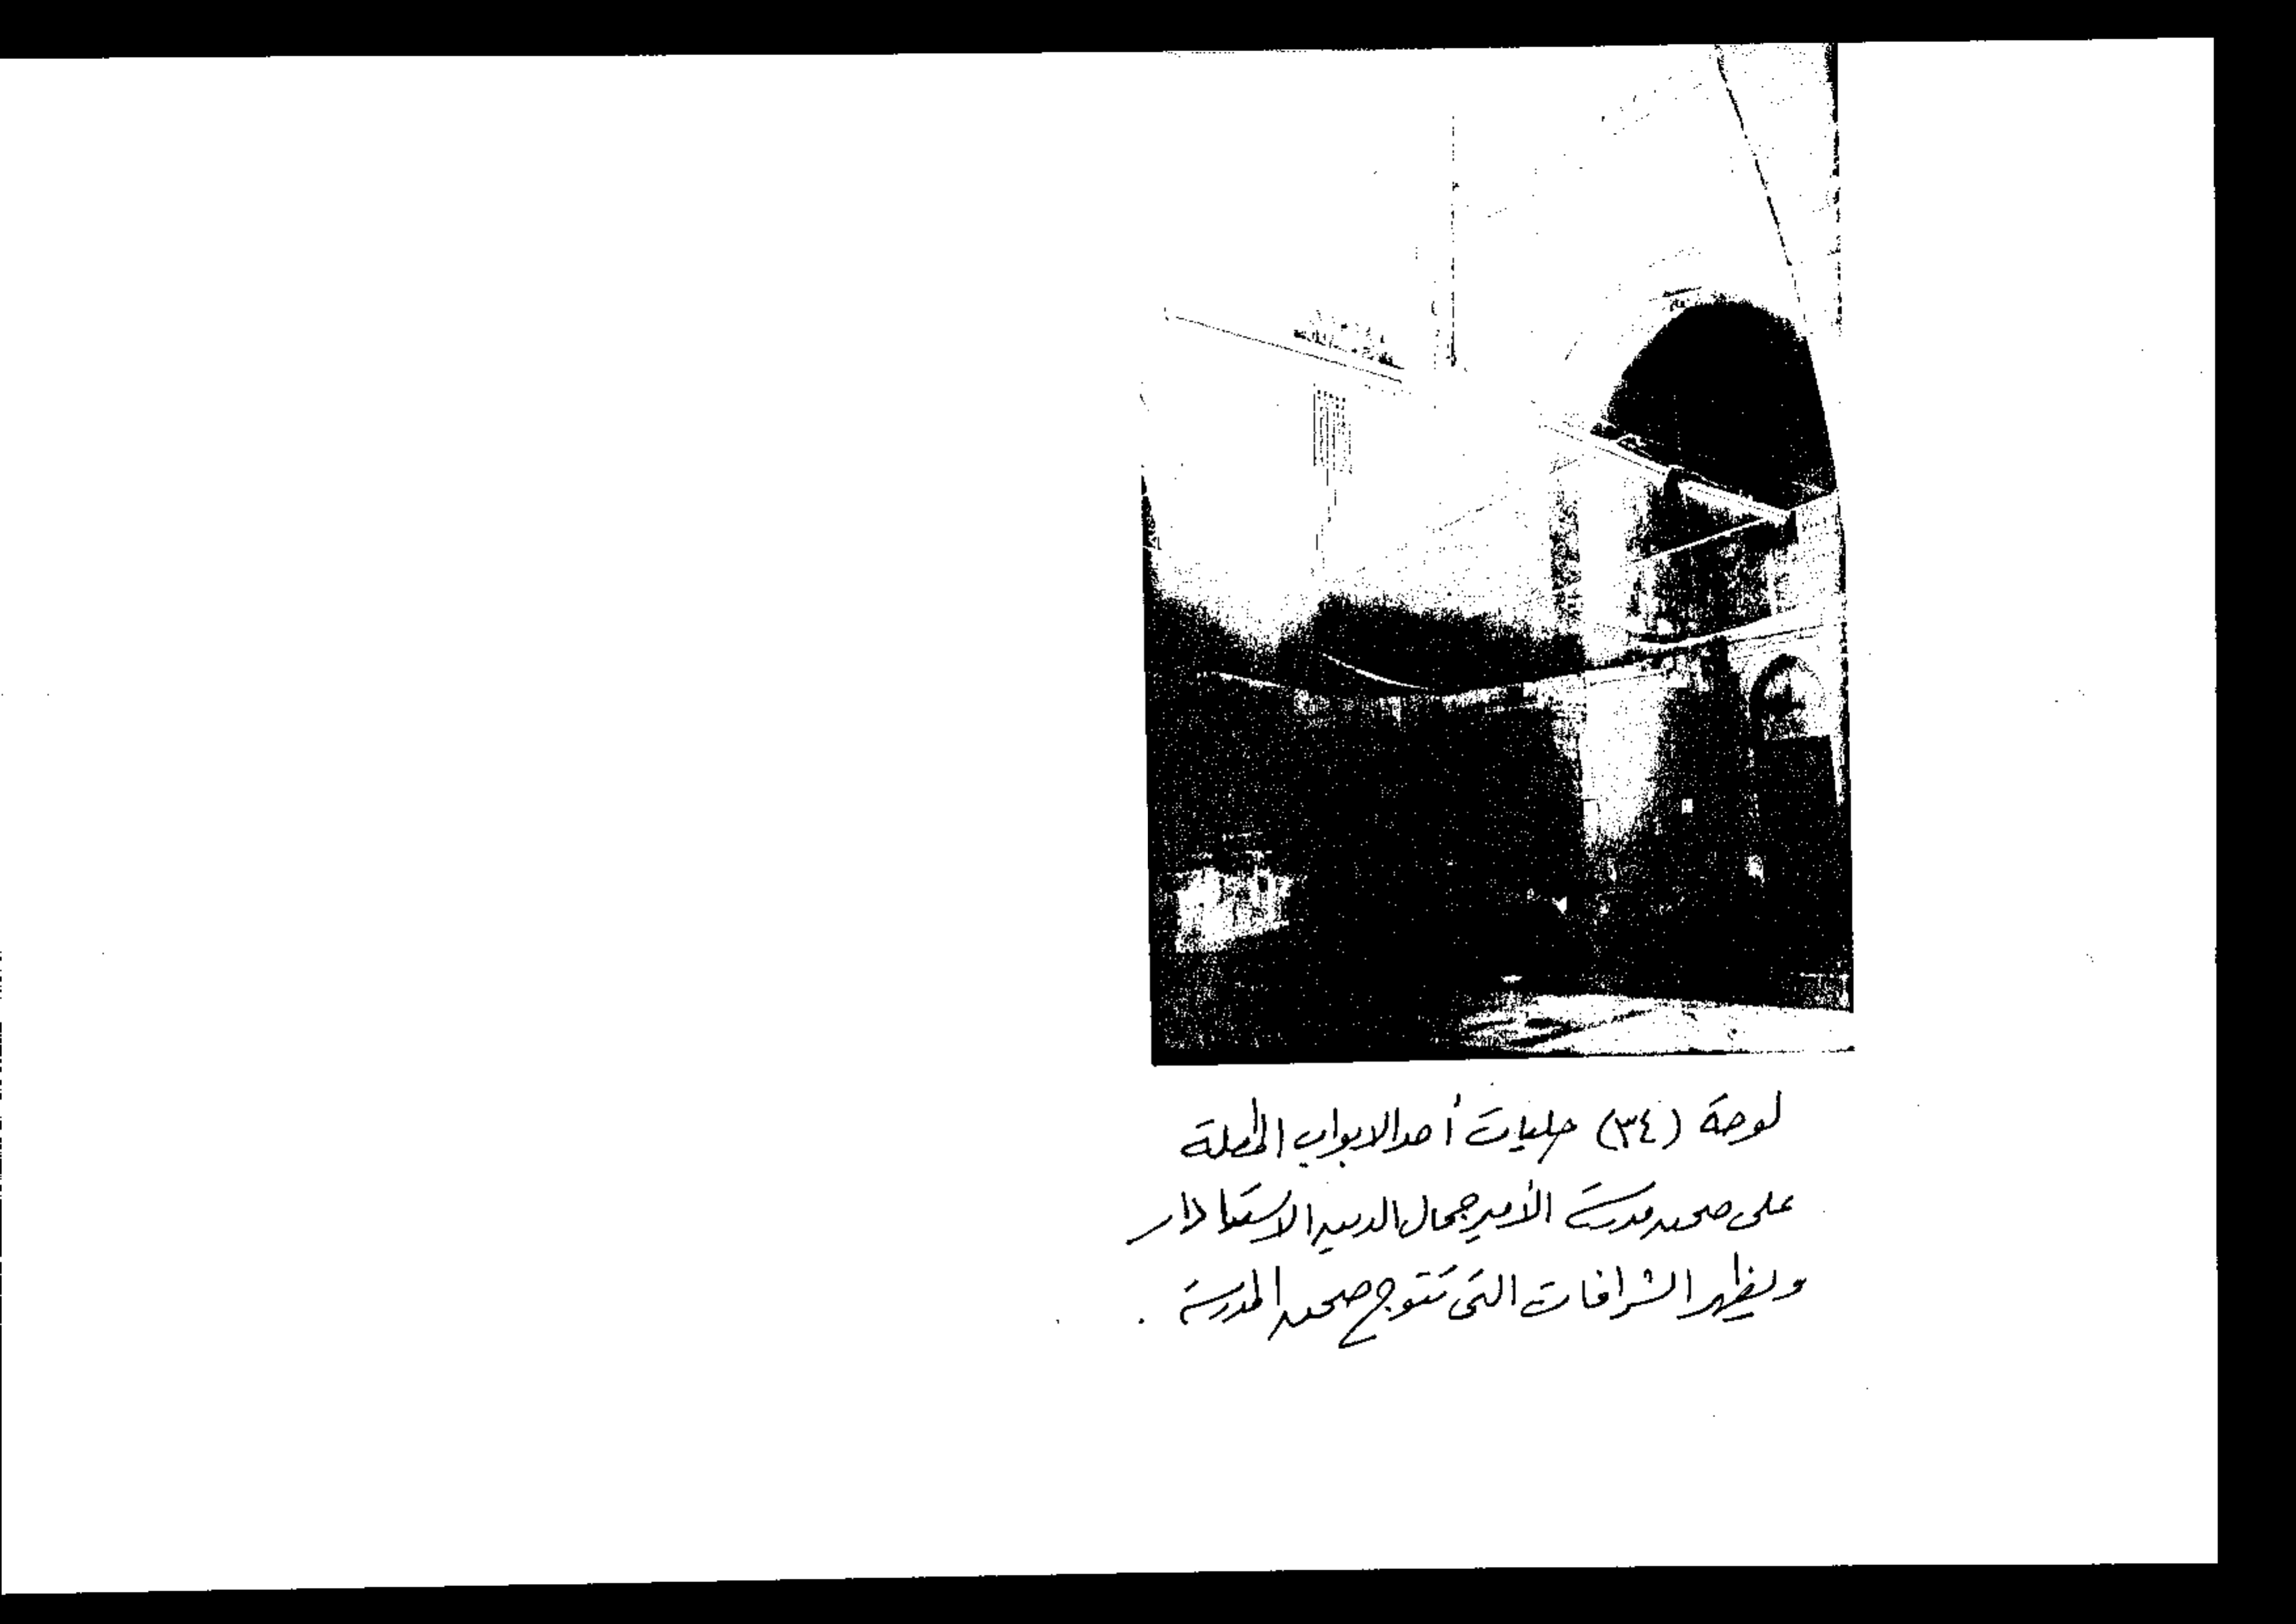 لوحة (٣٤) حليات أحد الابواب المطلة
على صحن مدرسة الأمير جمال الدين الاستادار
ويظهر الشرافات التى تتوج صحن المدرسة .